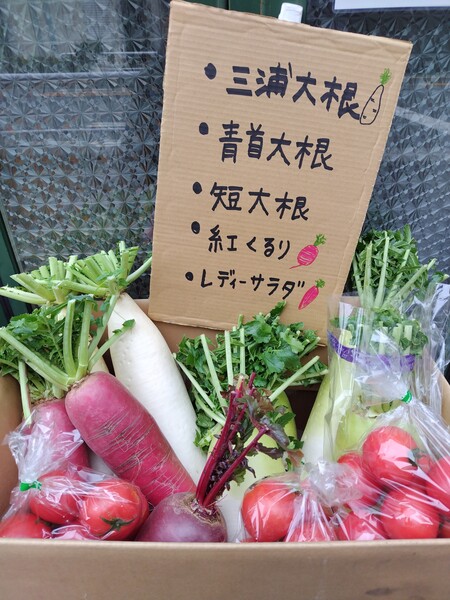 ・三浦大根
・青首大根
・短大根
・紅くるり
・レディーサラダ